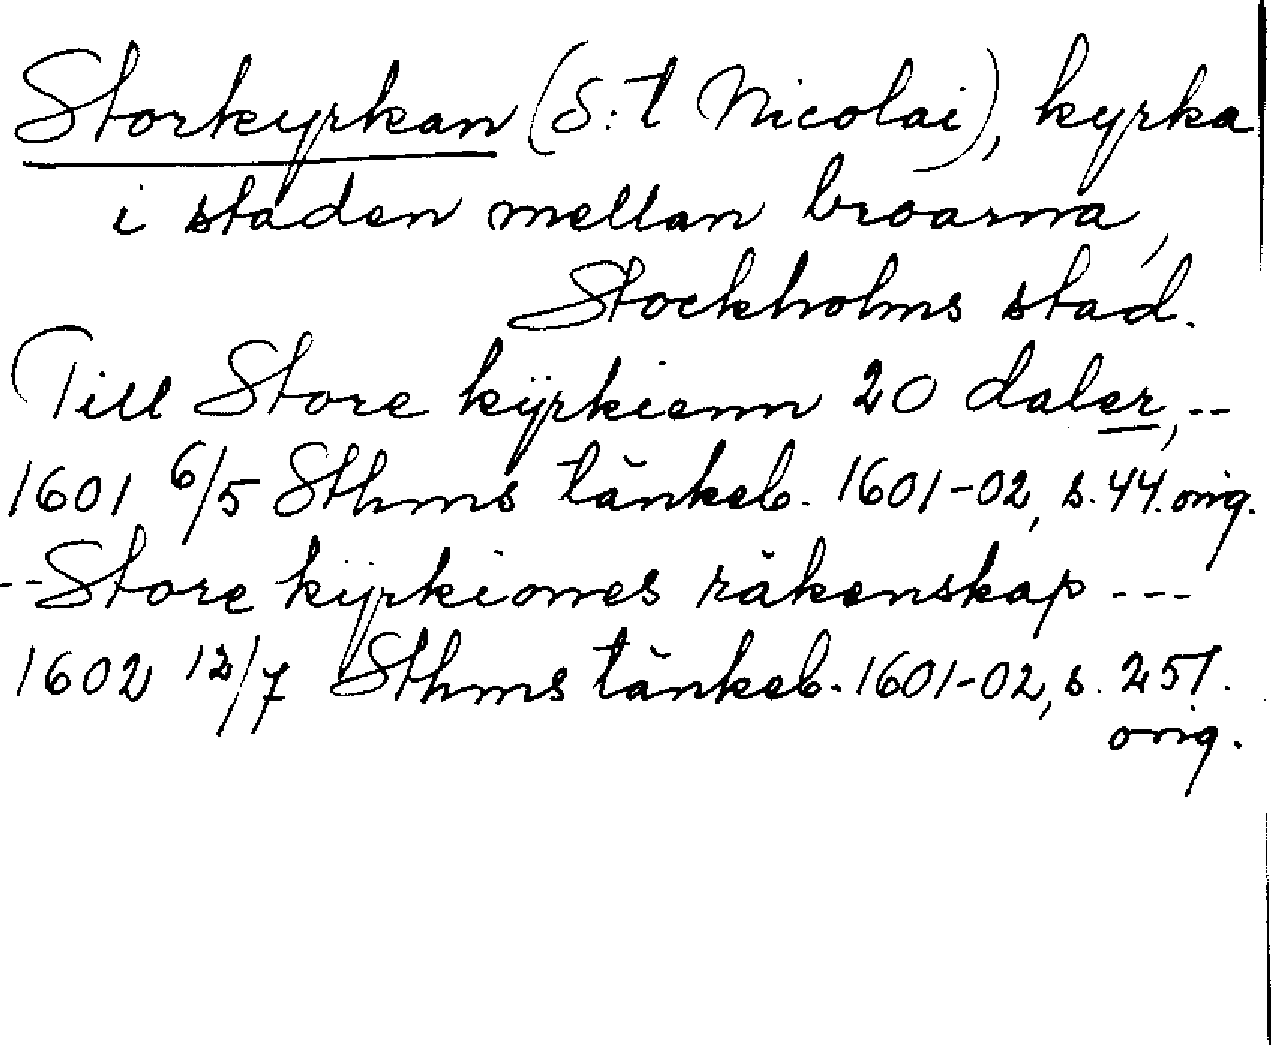 Storkyrkan (S:t Nicolai), kyrka
i staden mellan broarna,
Stockholms stad.
Till Store kÿrkienn 20 daler, --
1601 6/5 Sthms tänkeb. 1601-02, s. 44. orig.
-- Store kÿrkiones räkenskap ---
1602 12/7 Sthms tänkeb. 1601-02, s. 251.
orig.